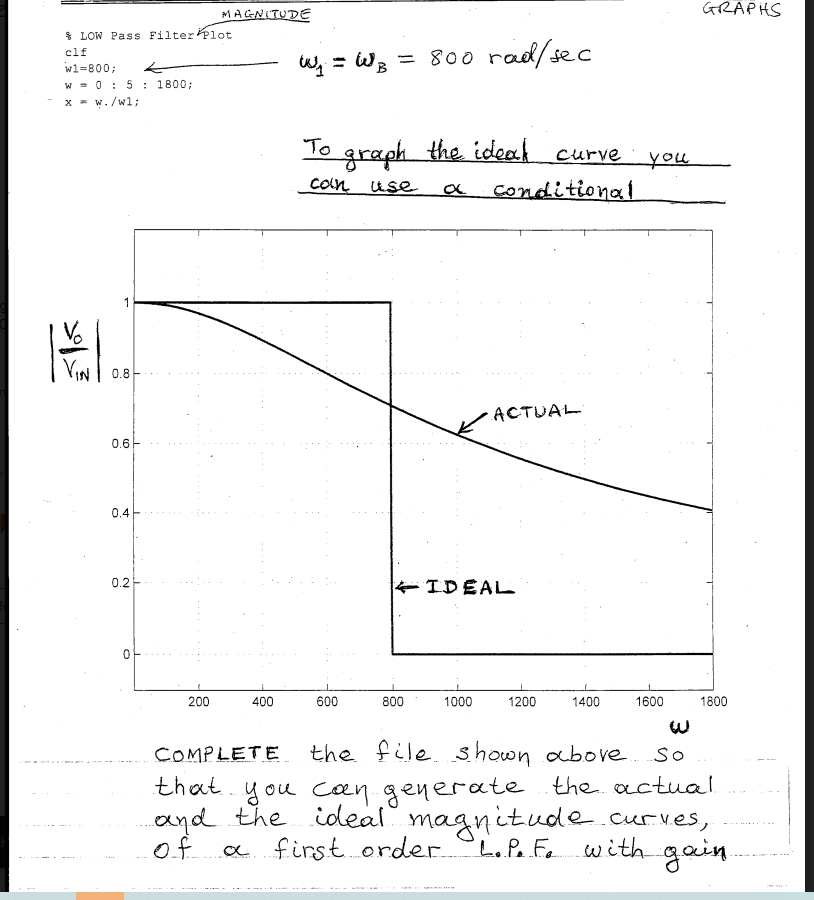 MAGNITUDE
GRAPHS
% LOW Pass Filter Plot
clf
w1=800;
w = 0 : 5 : 1800;
x = w./w1;
ω1 = ωB = 800 rad/sec
To graph the ideal curve you
can use a conditional
|Vo/VIN|
1
0.8
0.6
0.4
0.2
0
ACTUAL
IDEAL
200 400 600 800 1000 1200 1400 1600 1800
ω
COMPLETE the file shown above so
that you can generate the actual
and the ideal magnitude curves,
of a first order L.P.F. with gain